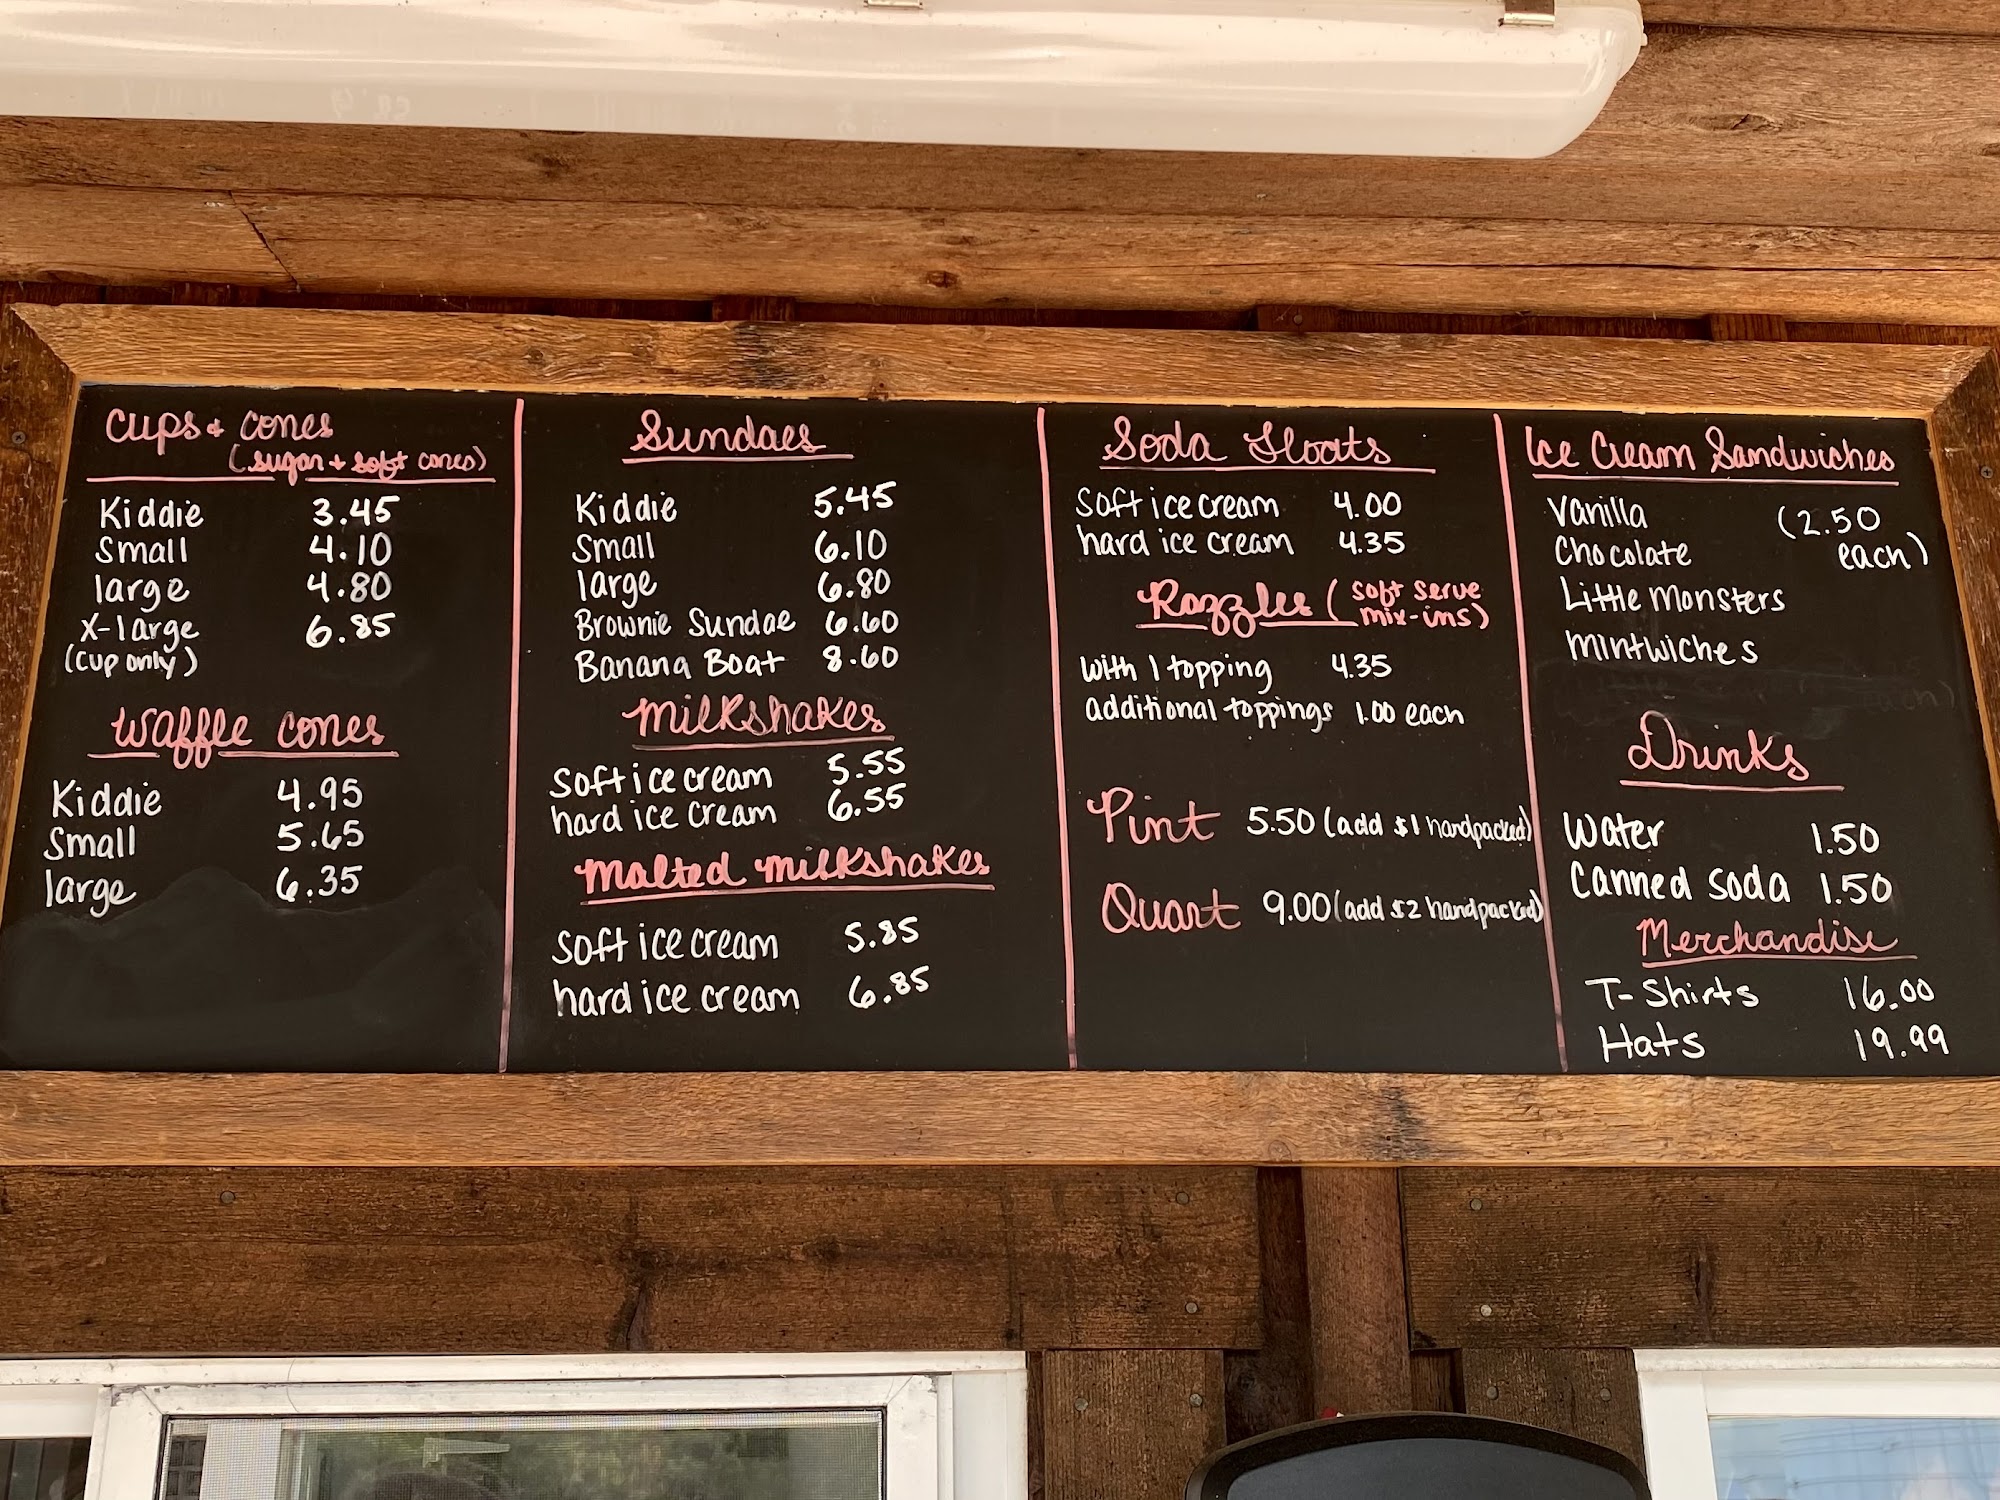 Cups & Cones
(sugar + soft cones)
Kiddie 3.45
Small 4.10
large 4.80
X-large 6.85
(cup only)
Waffle cones
Kiddie 4.95
Small 5.65
large 6.35
Sundaes
Kiddie 5.45
Small 6.10
large 6.80
Brownie Sundae 6.60
Banana Boat 8.60
Milkshakes
Soft ice cream 5.55
hard ice cream 6.55
Malted Milkshakes
Soft ice cream 5.85
hard ice cream 6.85
Soda Floats
Soft ice cream 4.00
hard ice cream 4.35
Razzles (soft serve
mix-ins)
with 1 topping 4.35
additional toppings 1.00 each
Pint 5.50 (add $1 handpacked)
Quart 9.00 (add $2 handpacked)
Ice Cream Sandwiches
Vanilla (2.50
Chocolate each)
Little Monsters
Mintwiches
Drinks
Water 1.50
Canned Soda 1.50
Merchandise
T-Shirts 16.00
Hats 19.99